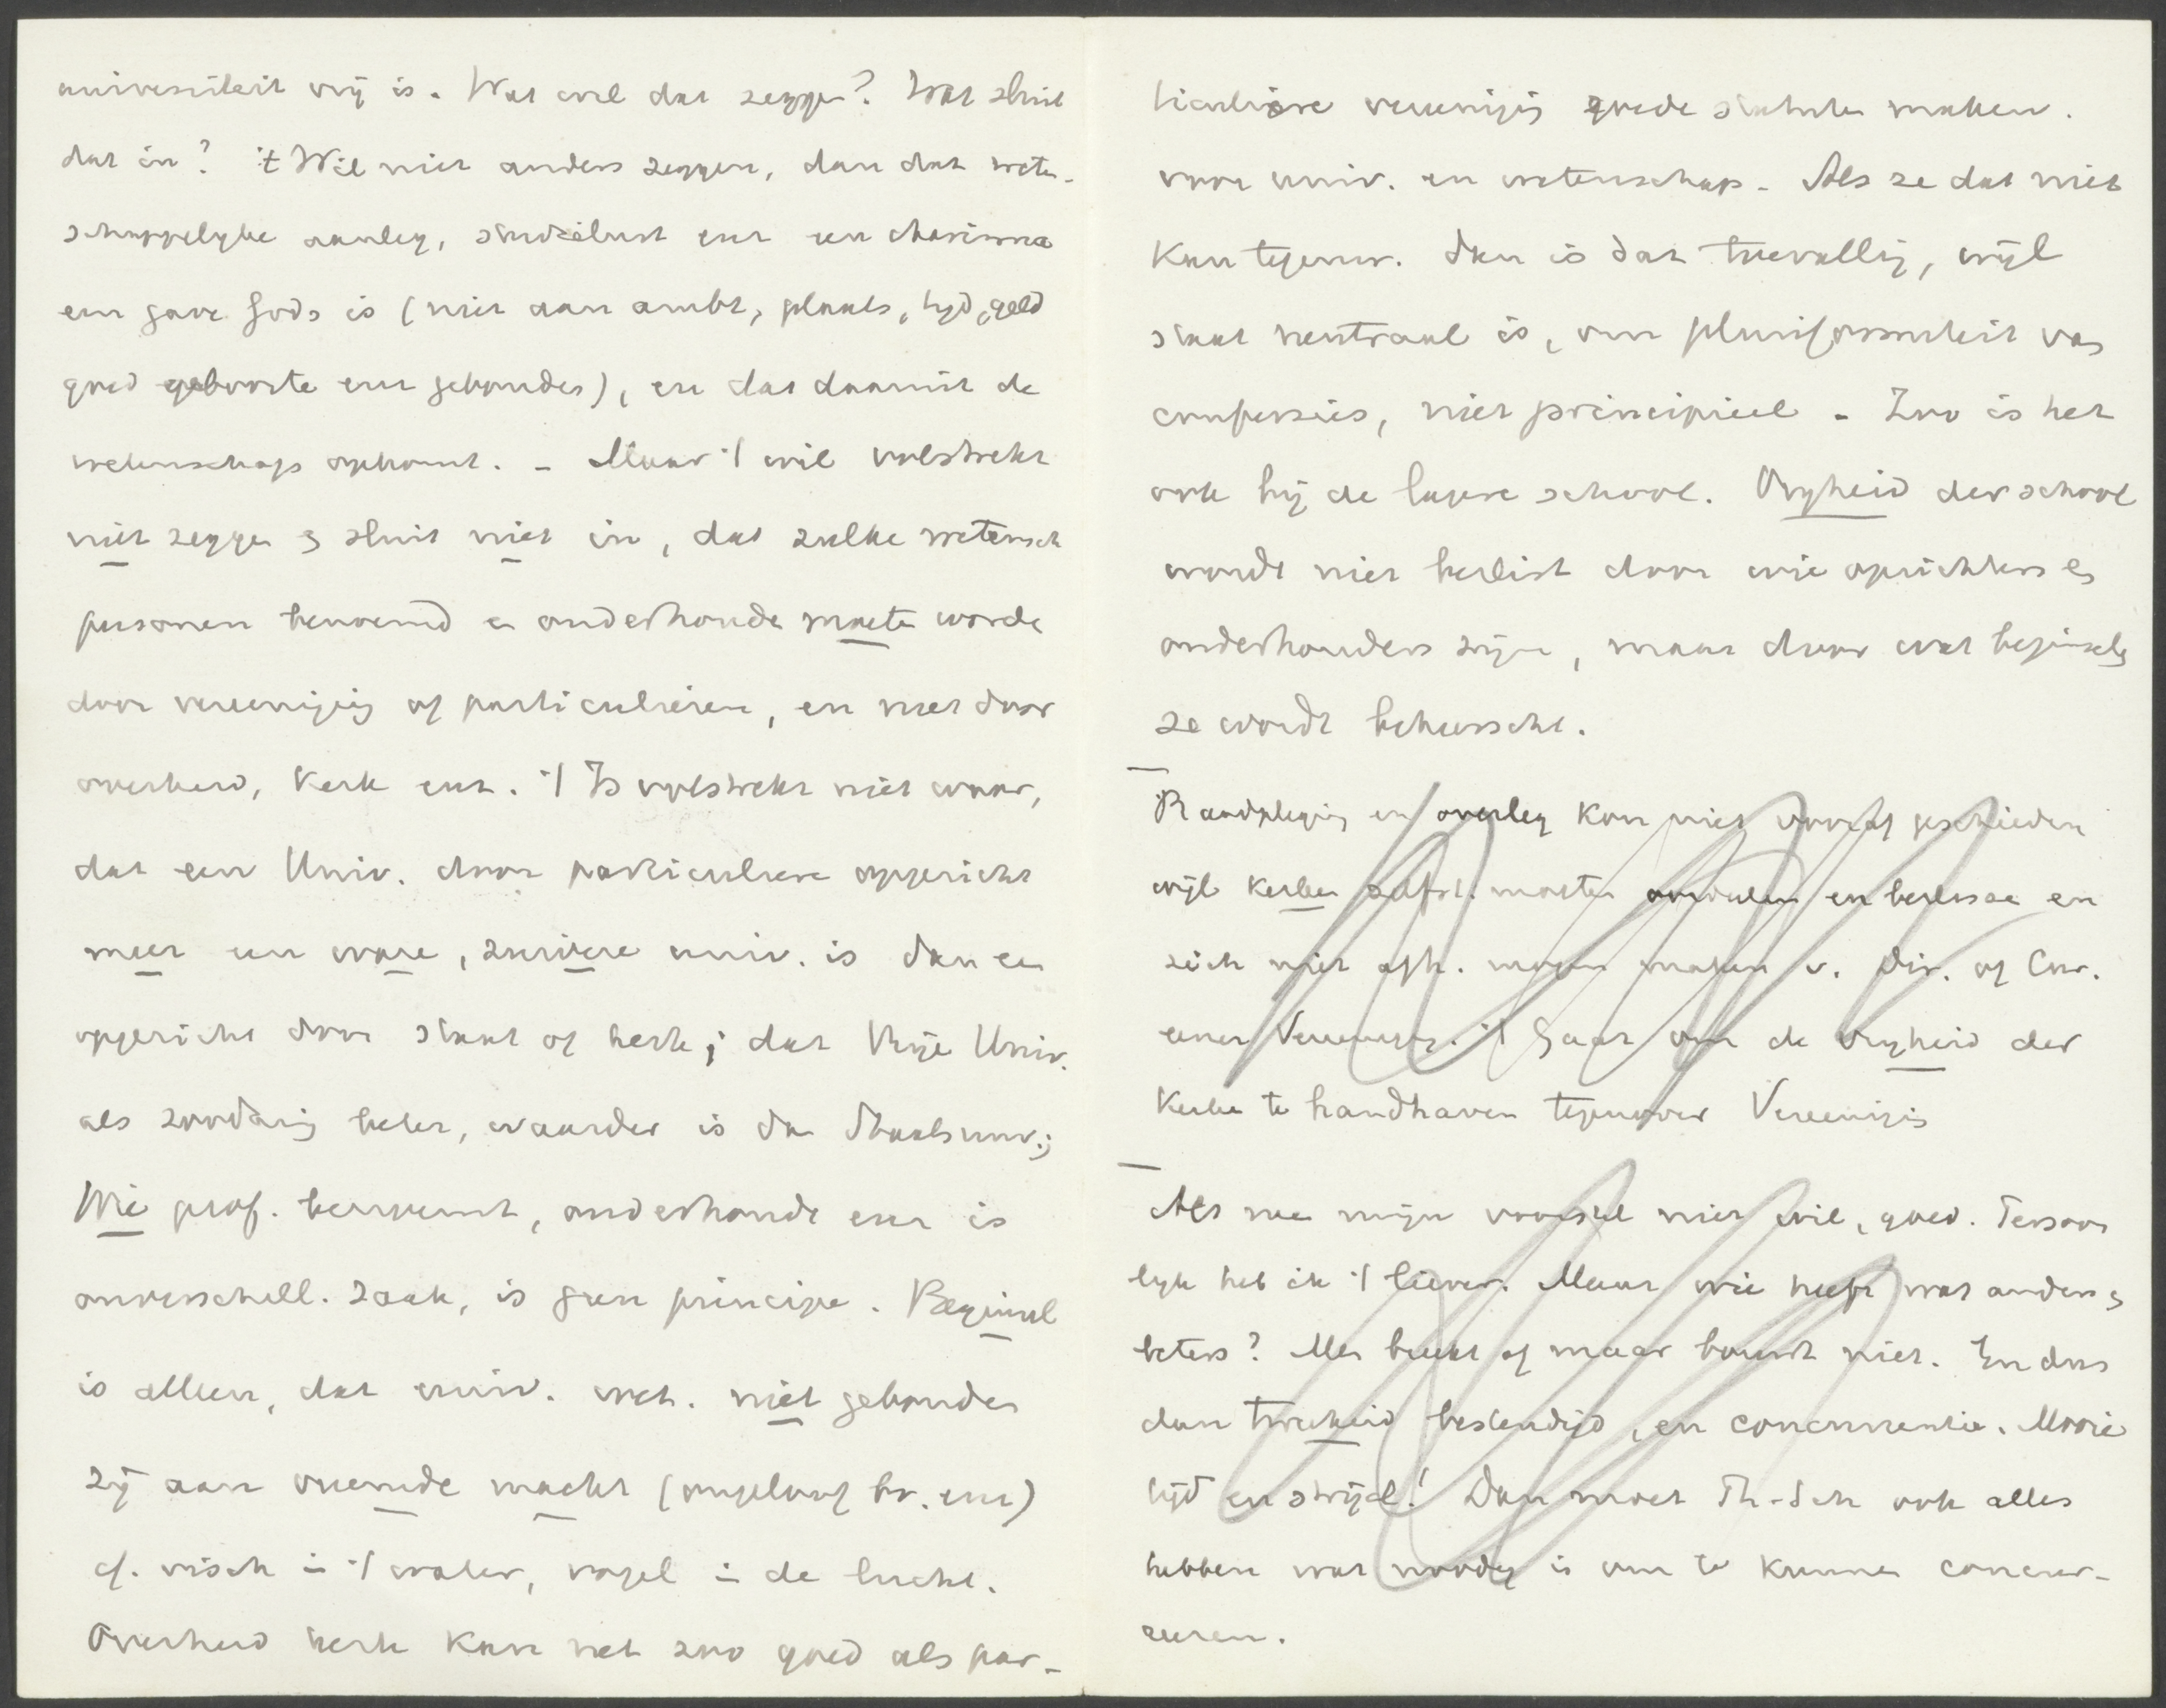 universiteit vrij is. Wat wil dat zeggen? Wat sluit
dat in? 't Wil niet anders zeggen, dan dat weten-
schappelyke aanleg, studielust enz een charisma
een gave Gods is (niet aan ambt, plaats, tyd, geld
goed geboorte enz gebonden), en dat daaruit de
wetenschap opkomt. - Maar 't wil volstrekt
niet zeggen & sluit niet in, dat zulke wetensch
personen benoemd en onderhouden moeten worde
door vereeniging of particulieren, en niet door
overheid, kerk enz. 't Is volstrekt niet waar,
dat een Univ. door particuliere opgericht
meer een ware, zuivere univ. is dan een
opgericht door staat of kerk; dat Vrije Univ.
als zoodanig beter, waarder is dan Staatsuniv.;
Wie prof. benoemt, onderhoudt enz is
onverschill. zaak, is geen principe. Beginsel
is alleen, dat univ. wet. niet gebonden
zij aan vreemde macht (ongeloof bv. enz)
cf. visch in 't water, vogel in de lucht.
Overheid kerk kan net zoo goed als par-
ticuliere vereenigig goede statuten maken.
voor univ. en wetenschap. Als ze dat niet
kan tegenw. dan is dat toevallig, wijl
staat neutraal is, om pluriformiteit van
confessies, niet principieel - Zoo is het
ook bij de lagere school. Vryheid der school
wordt niet beslist door wie oprichters en
onderhouders zijn, maar door wat beginsels
ze wordt beheerscht.
Raadpleging en overleg kon niet vooraf geschieden
wijl kerken zelfst. moeten oordeelen en beslissen en
zich niet afh. mogen maken v. Dir. of Cur.
eener Vereenig. 't Gaat om de vryheid der
Kerken te handhaven tegenover Vereenigig
Als men mijn voorstel niet wil, goed. Persoon
lyk heb ik 't liever. Maar wie heeft wat anders &
beters? Men breekt af maar bouwt niet. En dus
dan tweeheid bestendigd, en concurrentie. Mooie
tijd en strijd! Dan moet Th-Sch ook alles
hebben wat noodig is om te kunnen concur-
reeren.